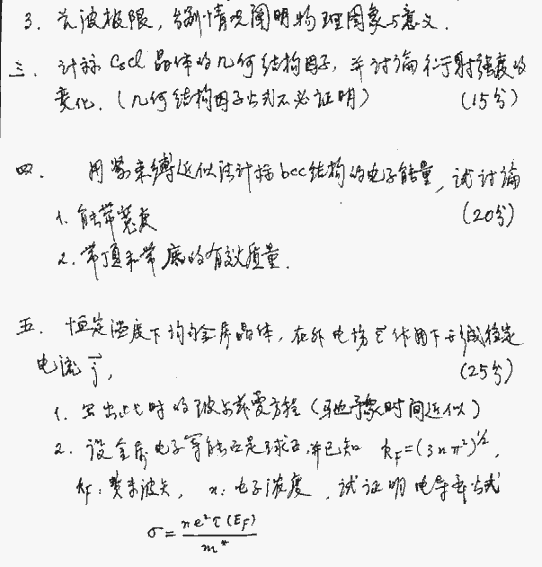 3. 长波极限, 分别情况阐明物理图象与意义.
三. 计算 CsCl 晶体的几何结构因子, 并讨论衍射强度的
变化. (几何结构因子公式不必证明) (15分)
四. 用紧束缚近似法计算bcc结构的电子能量, 试讨论
1. 能带宽度 (20分)
2. 带顶和带底的有效质量.
五. 恒定温度下均匀金属晶体, 在外电场 ε 作用下形成稳定
电流 j, (25分)
1. 写出此时的玻尔兹曼方程 (弛豫时间近似)
2. 设金属电子等能面是球面, 并已知 k_F=(3nπ²)^{1/2},
k_F: 费米波矢, n: 电子浓度, 试证明电导率公式
σ = ne²τ(E_F)/m*